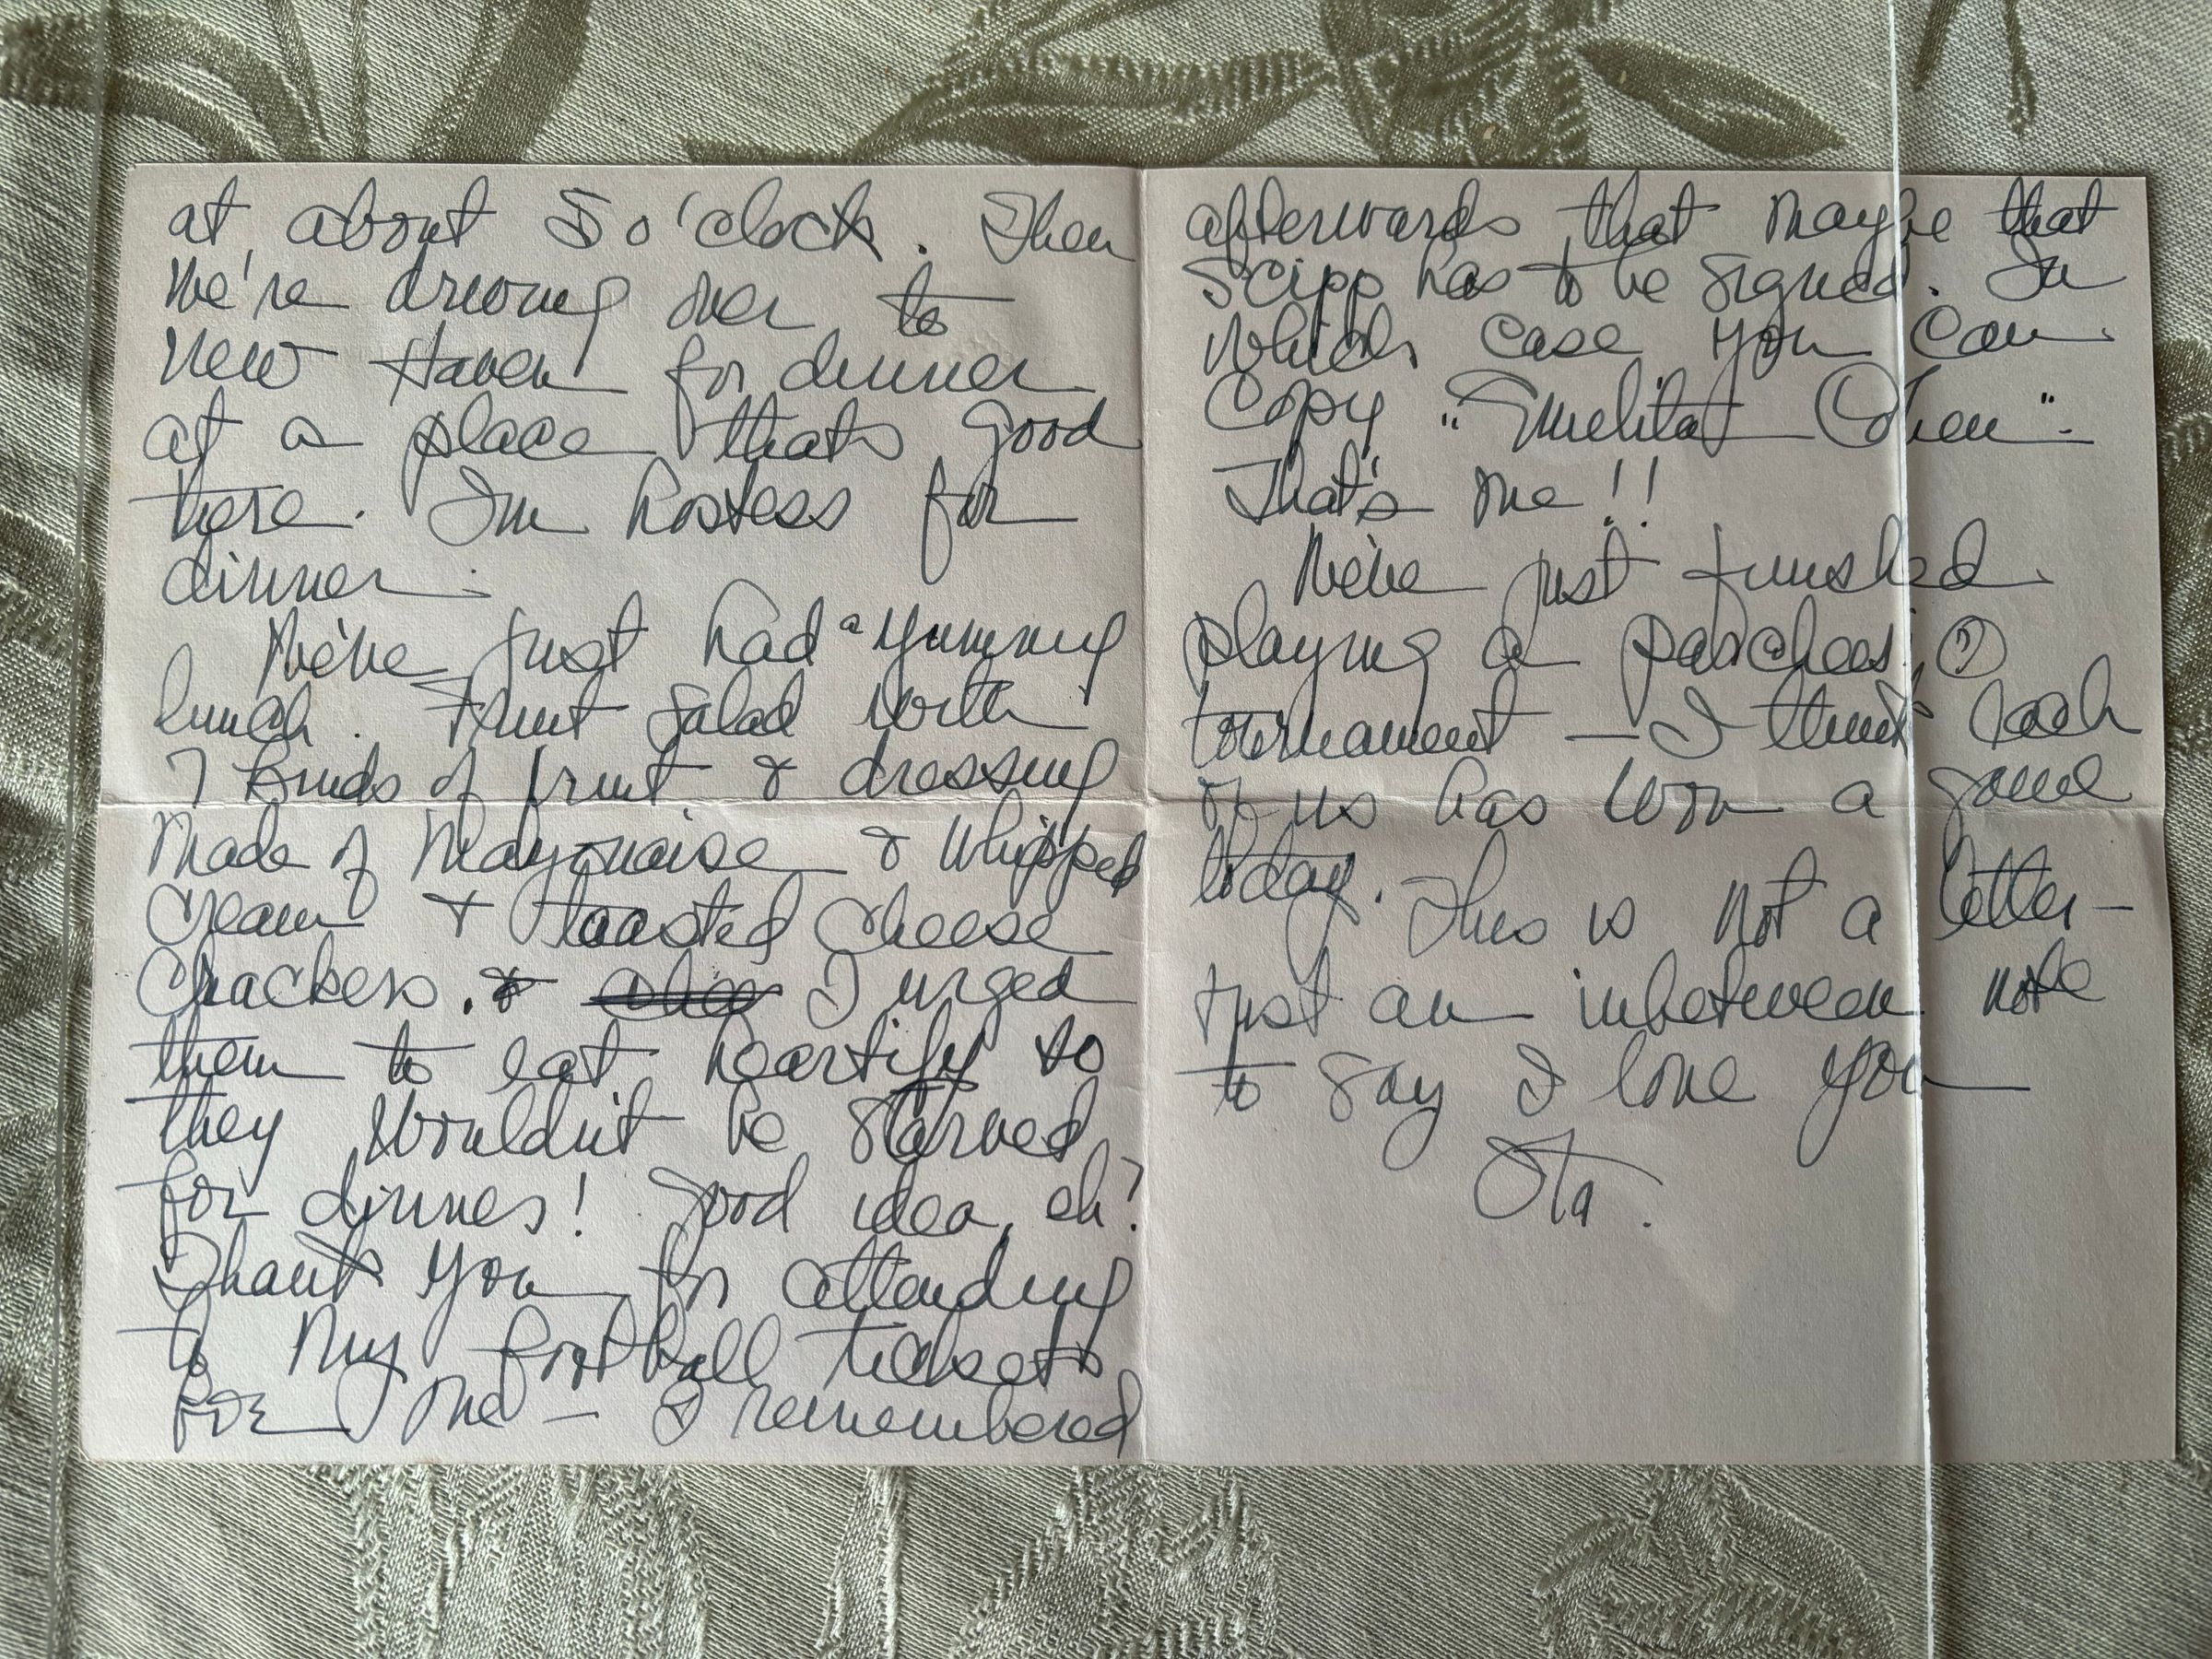 at about 5 o'clock. Then
We're driving over to
New Haven for dinner
at a place thats good
there. Im hostess for
dinner.
We've just had a yummy
lunch. Fruit salad with
7 kinds of fruit & dressing
made of Mayonaise & whipped
cream & toasted cheese
Crackers. & I urged
them to eat heartify so
they wouldn't be starved
for dinner! Good idea, eh?
Thank you for attending
to my football tickets
for me – I remembered
afterwards that maybe that
Scipp has to be signed. In
which case you can
Copy " Cohen".
That's me!!
We've just finished
playing a parcheesi (?)
tournament – I think each
of us has won a game
today. This is not a letter –
just an inbetween note
to say I love you
Ota.